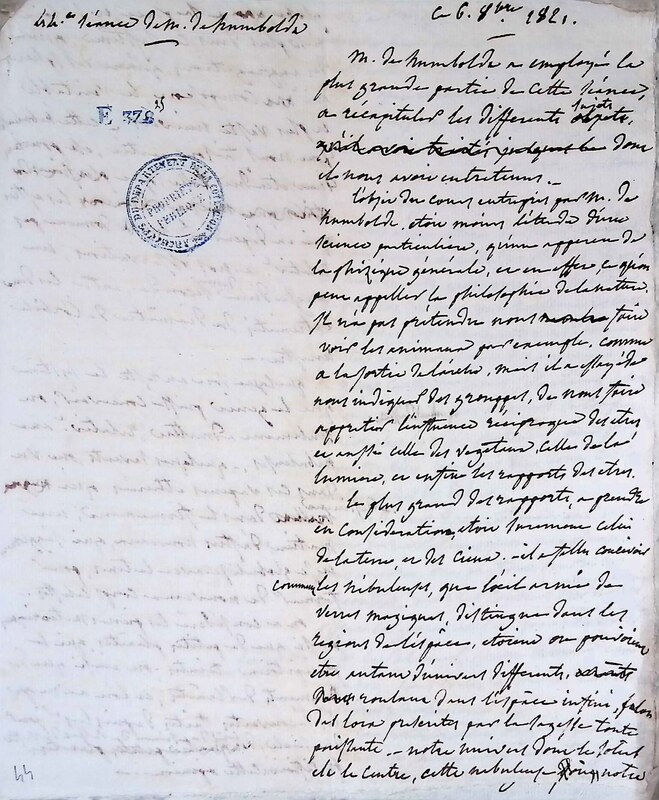 44.e séance de M. de humboldt
Ce 6. 8bre 1821.
E 378 25
ARCHIVES DU DEPARTEMENT DE LA
PROPRIÉTÉ PUBLIQUE
M. de humboldt a employé la
plus grande partie de cette séance,
a récapituler les differents sujets objets,
qu'il avoit traités jusques la dont
il nous avoit entretenus. —
l'objet du cours entrepris par M. de
humboldt, étoit moins l'étude d'une
science particuliere, qu'un apperçu de
la phizique générale, et en effet, ce qu'on
peut appeller la philosophie de la nature.
Il n'a pas prétendu nous montrer faire
voir les animaux par exemple, comme
a la sortie de l'arche, mais il a essayé de
nous indiquer des grouppes, de nous faire
apprecier l'influence réciproque des etres
et aussi celle des vegetaux, celle de la
lumiere, et enfin les rapports des etres.
le plus grand des rapports, a prendre
en considération, etoit surement celui
de la terre et des cieux. — il a fallu concevoir
comment les nebuleuses, que l'oeil armé de
verres magiques, distingue dans les
regions de l'espace, etoient ou pouvoient
etre autant d'univers differents,
roulant dans l'espace infini, selon
des loix presentes par la sagesse toute
puissante. — notre univers dont le soleil
est le centre, cette nebuleuse notre
44